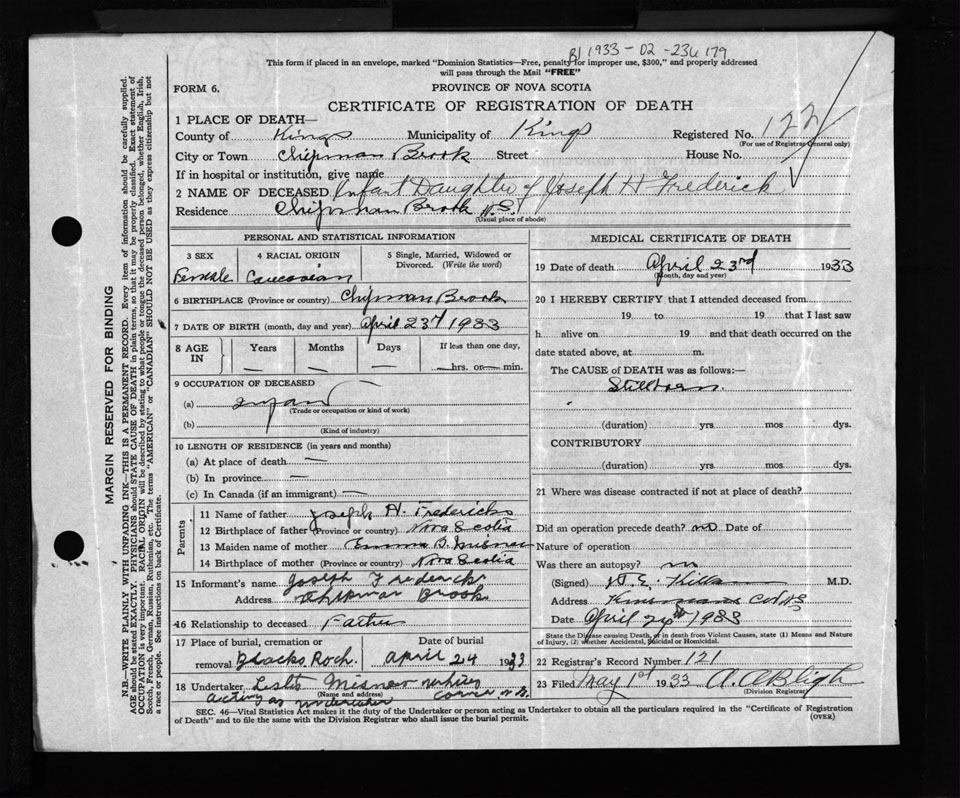 1933-02-236179
This form if placed in an envelope, marked "Dominion Statistics—Free, penalty for improper use, $300," and properly addressed
will pass through the Mail "FREE"
FORM 6.
PROVINCE OF NOVA SCOTIA
CERTIFICATE OF REGISTRATION OF DEATH
1 PLACE OF DEATH—
County of Kings Municipality of Kings Registered No. 122
(For use of Registrar General only)
City or Town Chipman Brook Street House No.
If in hospital or institution, give name
2 NAME OF DECEASED Infant Daughter of Joseph H Frederick
Residence Chipman Brook N.S.
(Usual place of abode)
PERSONAL AND STATISTICAL INFORMATION
3 SEX 4 RACIAL ORIGIN 5 Single, Married, Widowed or
Divorced. (Write the word)
Female Caucasian
6 BIRTHPLACE (Province or country) Chipman Brook
7 DATE OF BIRTH (month, day and year) April 23rd 1933
8 AGE IN Years Months Days If less than one day,
— — — — hrs. or — min.
9 OCCUPATION OF DECEASED
(a) Infant
(Trade or occupation or kind of work)
(b)
(Kind of industry)
10 LENGTH OF RESIDENCE (in years and months)
(a) At place of death —
(b) In province —
(c) In Canada (if an immigrant) —
Parents
11 Name of father Joseph H. Fredericks
12 Birthplace of father (Province or country) Nova Scotia
13 Maiden name of mother Emma B. Misner
14 Birthplace of mother (Province or country) Nova Scotia
15 Informant's name Joseph Fredericks
Address Chipman Brook
16 Relationship to deceased Father
17 Place of burial, cremation or Date of burial
removal Blacks Roch. April 24 1933
18 Undertaker Leslie Misner
(Name and address)
acting as undertaker Corner N.S.
MEDICAL CERTIFICATE OF DEATH
19 Date of death April 23rd 1933
(Month, day and year)
20 I HEREBY CERTIFY that I attended deceased from
19 to 19 that I last saw
h alive on 19 and that death occurred on the
date stated above, at m.
The CAUSE of DEATH was as follows:—
Stillborn.
(duration) yrs mos dys.
CONTRIBUTORY
(duration) yrs. mos. dys.
21 Where was disease contracted if not at place of death?
Did an operation precede death? no Date of
Nature of operation
Was there an autopsy? no
(Signed) M.D.
Address N.S
Date April 24th 1933
State the Disease causing Death, or in death from Violent Causes, state (1) Means and Nature
of Injury, (2) whether Accidental, Suicidal or Homicidal.
22 Registrar's Record Number 121
23 Filed May 1st 1933 A. A Bligh
(Division Registrar)
SEC. 46—Vital Statistics Act makes it the duty of the Undertaker or person acting as Undertaker to obtain all the particulars required in the "Certificate of Registration
of Death" and to file the same with the Division Registrar who shall issue the burial permit.
(OVER)
MARGIN RESERVED FOR BINDING
N.B.—WRITE PLAINLY WITH UNFADING INK—THIS IS A PERMANENT RECORD. Every item of information should be carefully supplied.
AGE should be stated EXACTLY. PHYSICIANS should STATE CAUSE OF DEATH in plain terms, so that it may be properly classified. Exact statement of
OCCUPATION is very important. RACIAL ORIGIN will be described by stating to what people or tongue the deceased person belonged, whether English, Irish,
Scotch, French, German, Russian, Ruthenian, etc. The terms "AMERICAN" or "CANADIAN" SHOULD NOT BE USED as they express citizenship but not
a race or people. See instructions on back of Certificate.